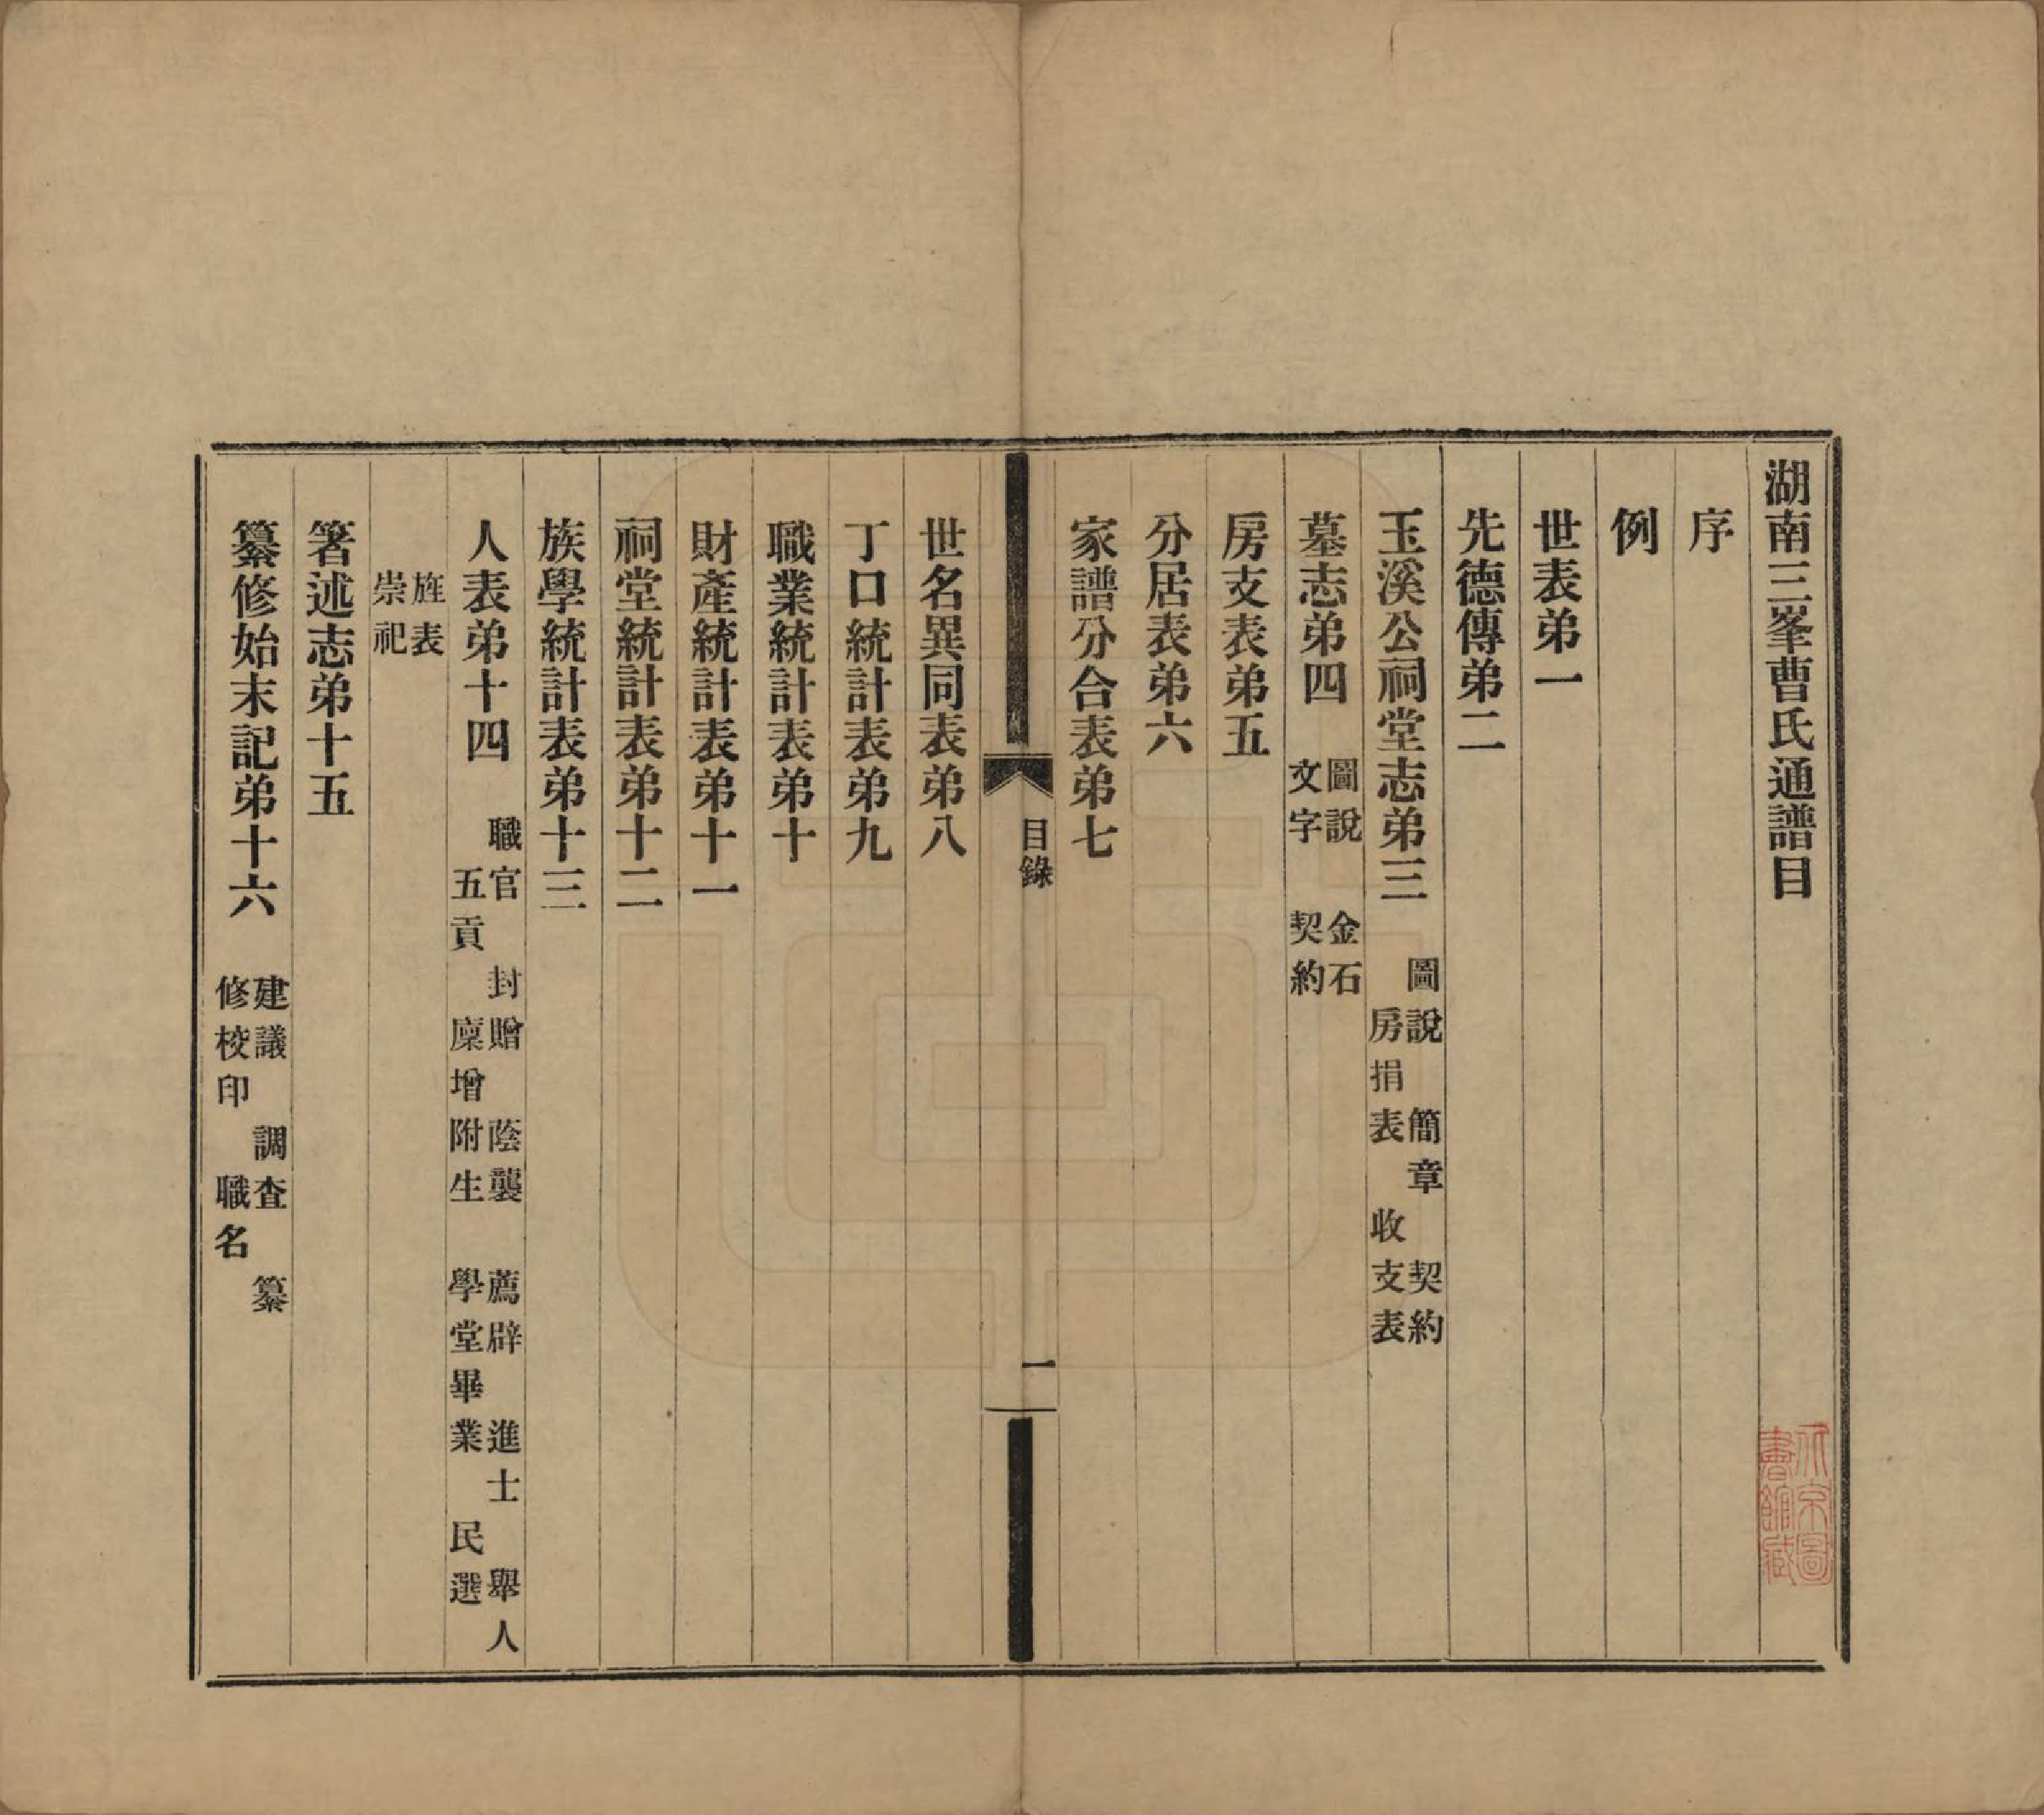 湖南三峯曹氏通譜目
序
例
世表弟一
先德傳弟二
玉溪公祠堂志弟三 圖說 簡章 契約
房捐表 收支表
墓志弟四 圖說 金石
文字 契約
房支表弟五
分居表弟六
家譜分合表弟七
目錄
一
世名異同表弟八
丁口統計表弟九
職業統計表弟十
財產統計表弟十一
祠堂統計表弟十二
族學統計表弟十三
人表弟十四 職官 封贈 蔭襲 薦辟 進士 舉人
五貢 廩增附生 學堂畢業 民選
旌表
崇祀
箸述志弟十五
纂修始末記弟十六 建議 調查 纂
修校印 職名
北京圖
書館藏